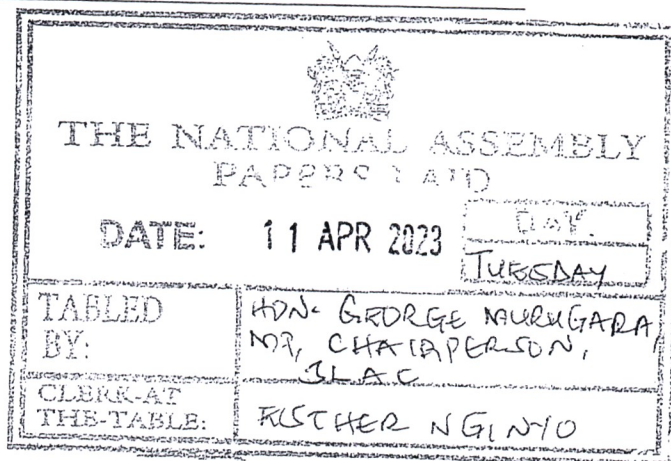 THE NATIONAL ASSEMBLY
PAPERS LAID
DATE: 11 APR 2023 DAY.
TUESDAY
TABLED BY: HON. GEORGE MURUGARA,
MP, CHAIRPERSON,
JLAC
CLERK-AT
THE-TABLE: ESTHER NGINYO